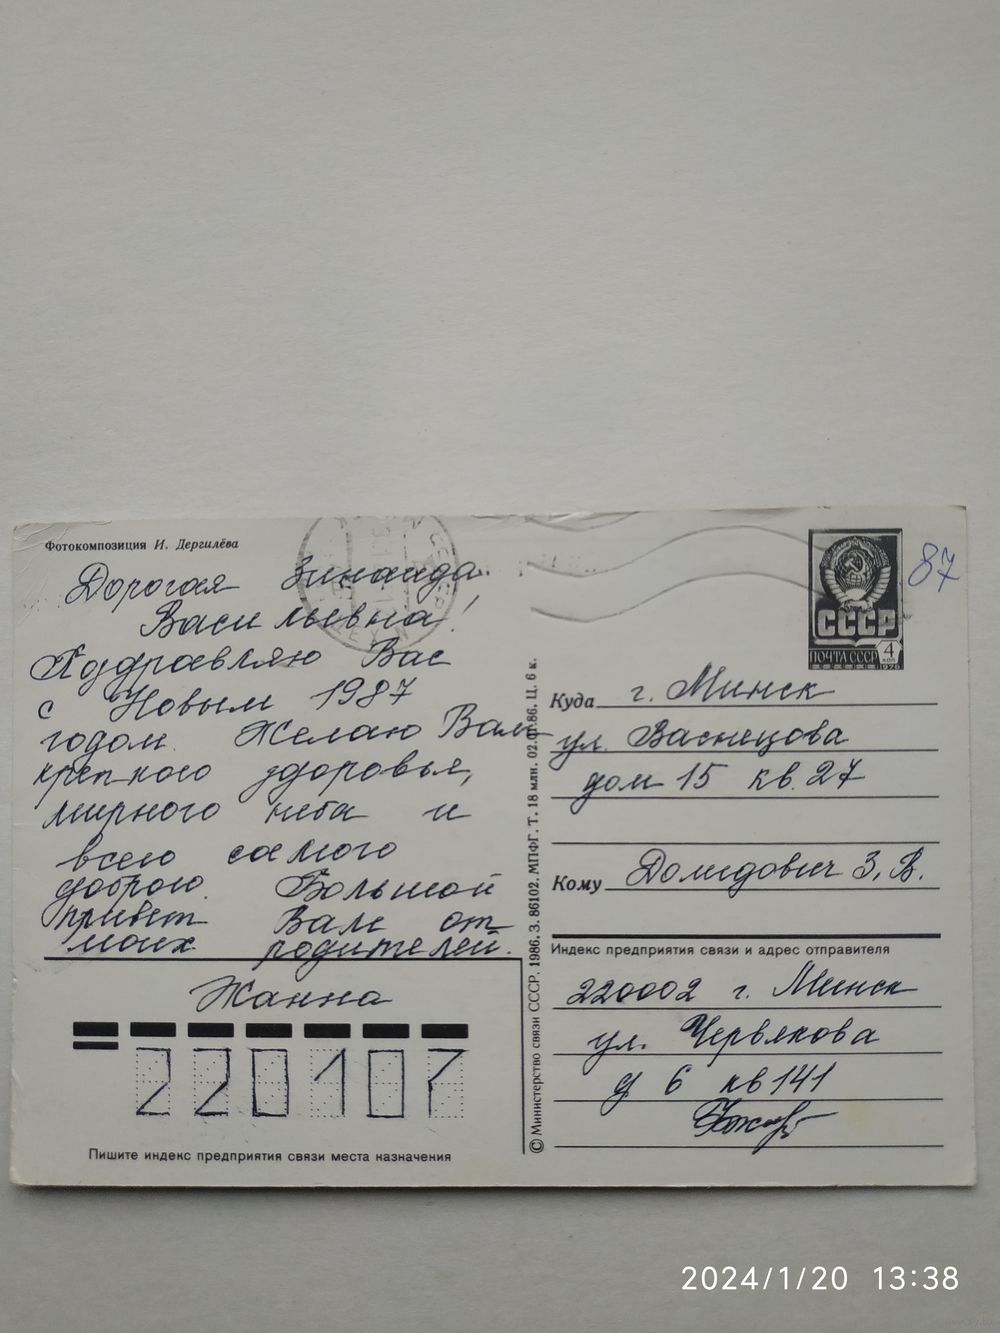 Фотокомпозиция И. Дергилёва
Дорогая Зинаида
Васильевна!
Поздравляю Вас
с Новым 1987
годом. Желаю Вам
крепкого здоровья,
мирного неба и
всего самого
доброго. Большой
привет Вам от
моих родителей.
Жанна
220107
Пишите индекс предприятия связи места назначения
© Министерство связи СССР. 1986. З. 86102. МПФГ. Т. 18 млн. 02.07.86. Ц. 6 к.
87
СССР
ПОЧТА СССР 4 КОП
1976
Куда г. Минск
ул. Васнецова
дом 15 кв. 27
Кому Домидович З. В.
Индекс предприятия связи и адрес отправителя
220002 г. Минск
ул. Червякова
д 6 кв 141
2024/1/20 13:38